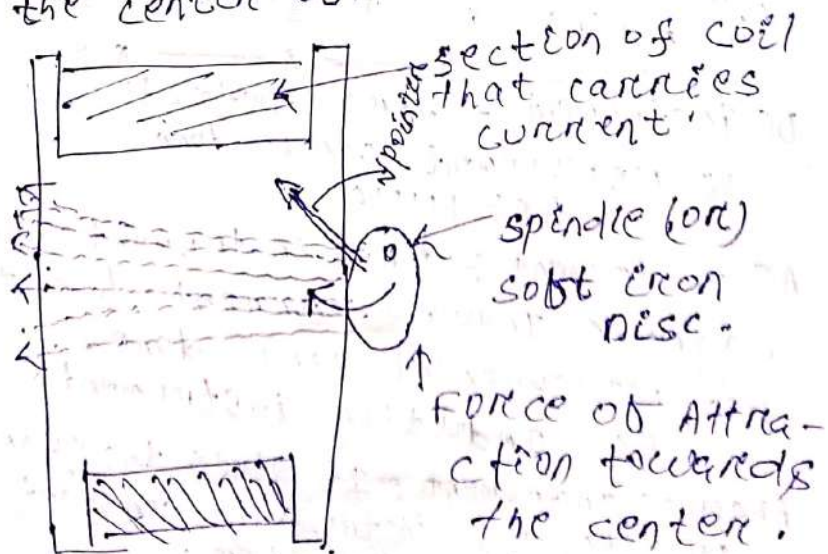 the center
section of coil
that carries
current.
pointer
spindle (or)
soft iron
Disc.
Force of Attra-
ction towards
the center.